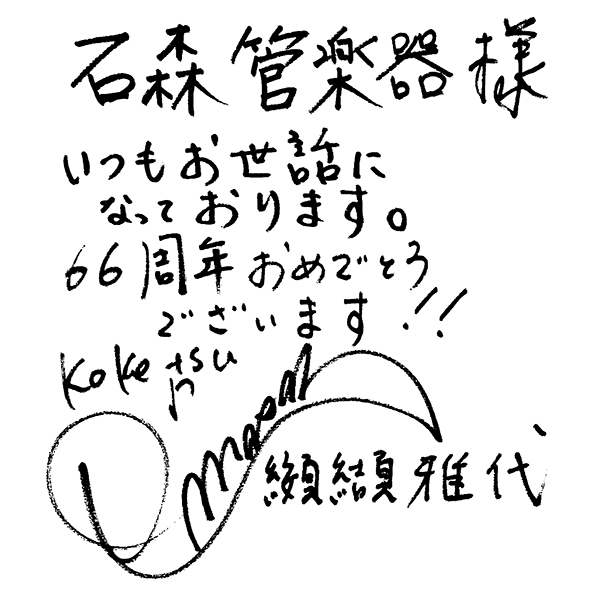 石森管楽器様
いつもお世話に
なっております。
66周年おめでとう
ございます!!
Koketsu
纐纈雅代